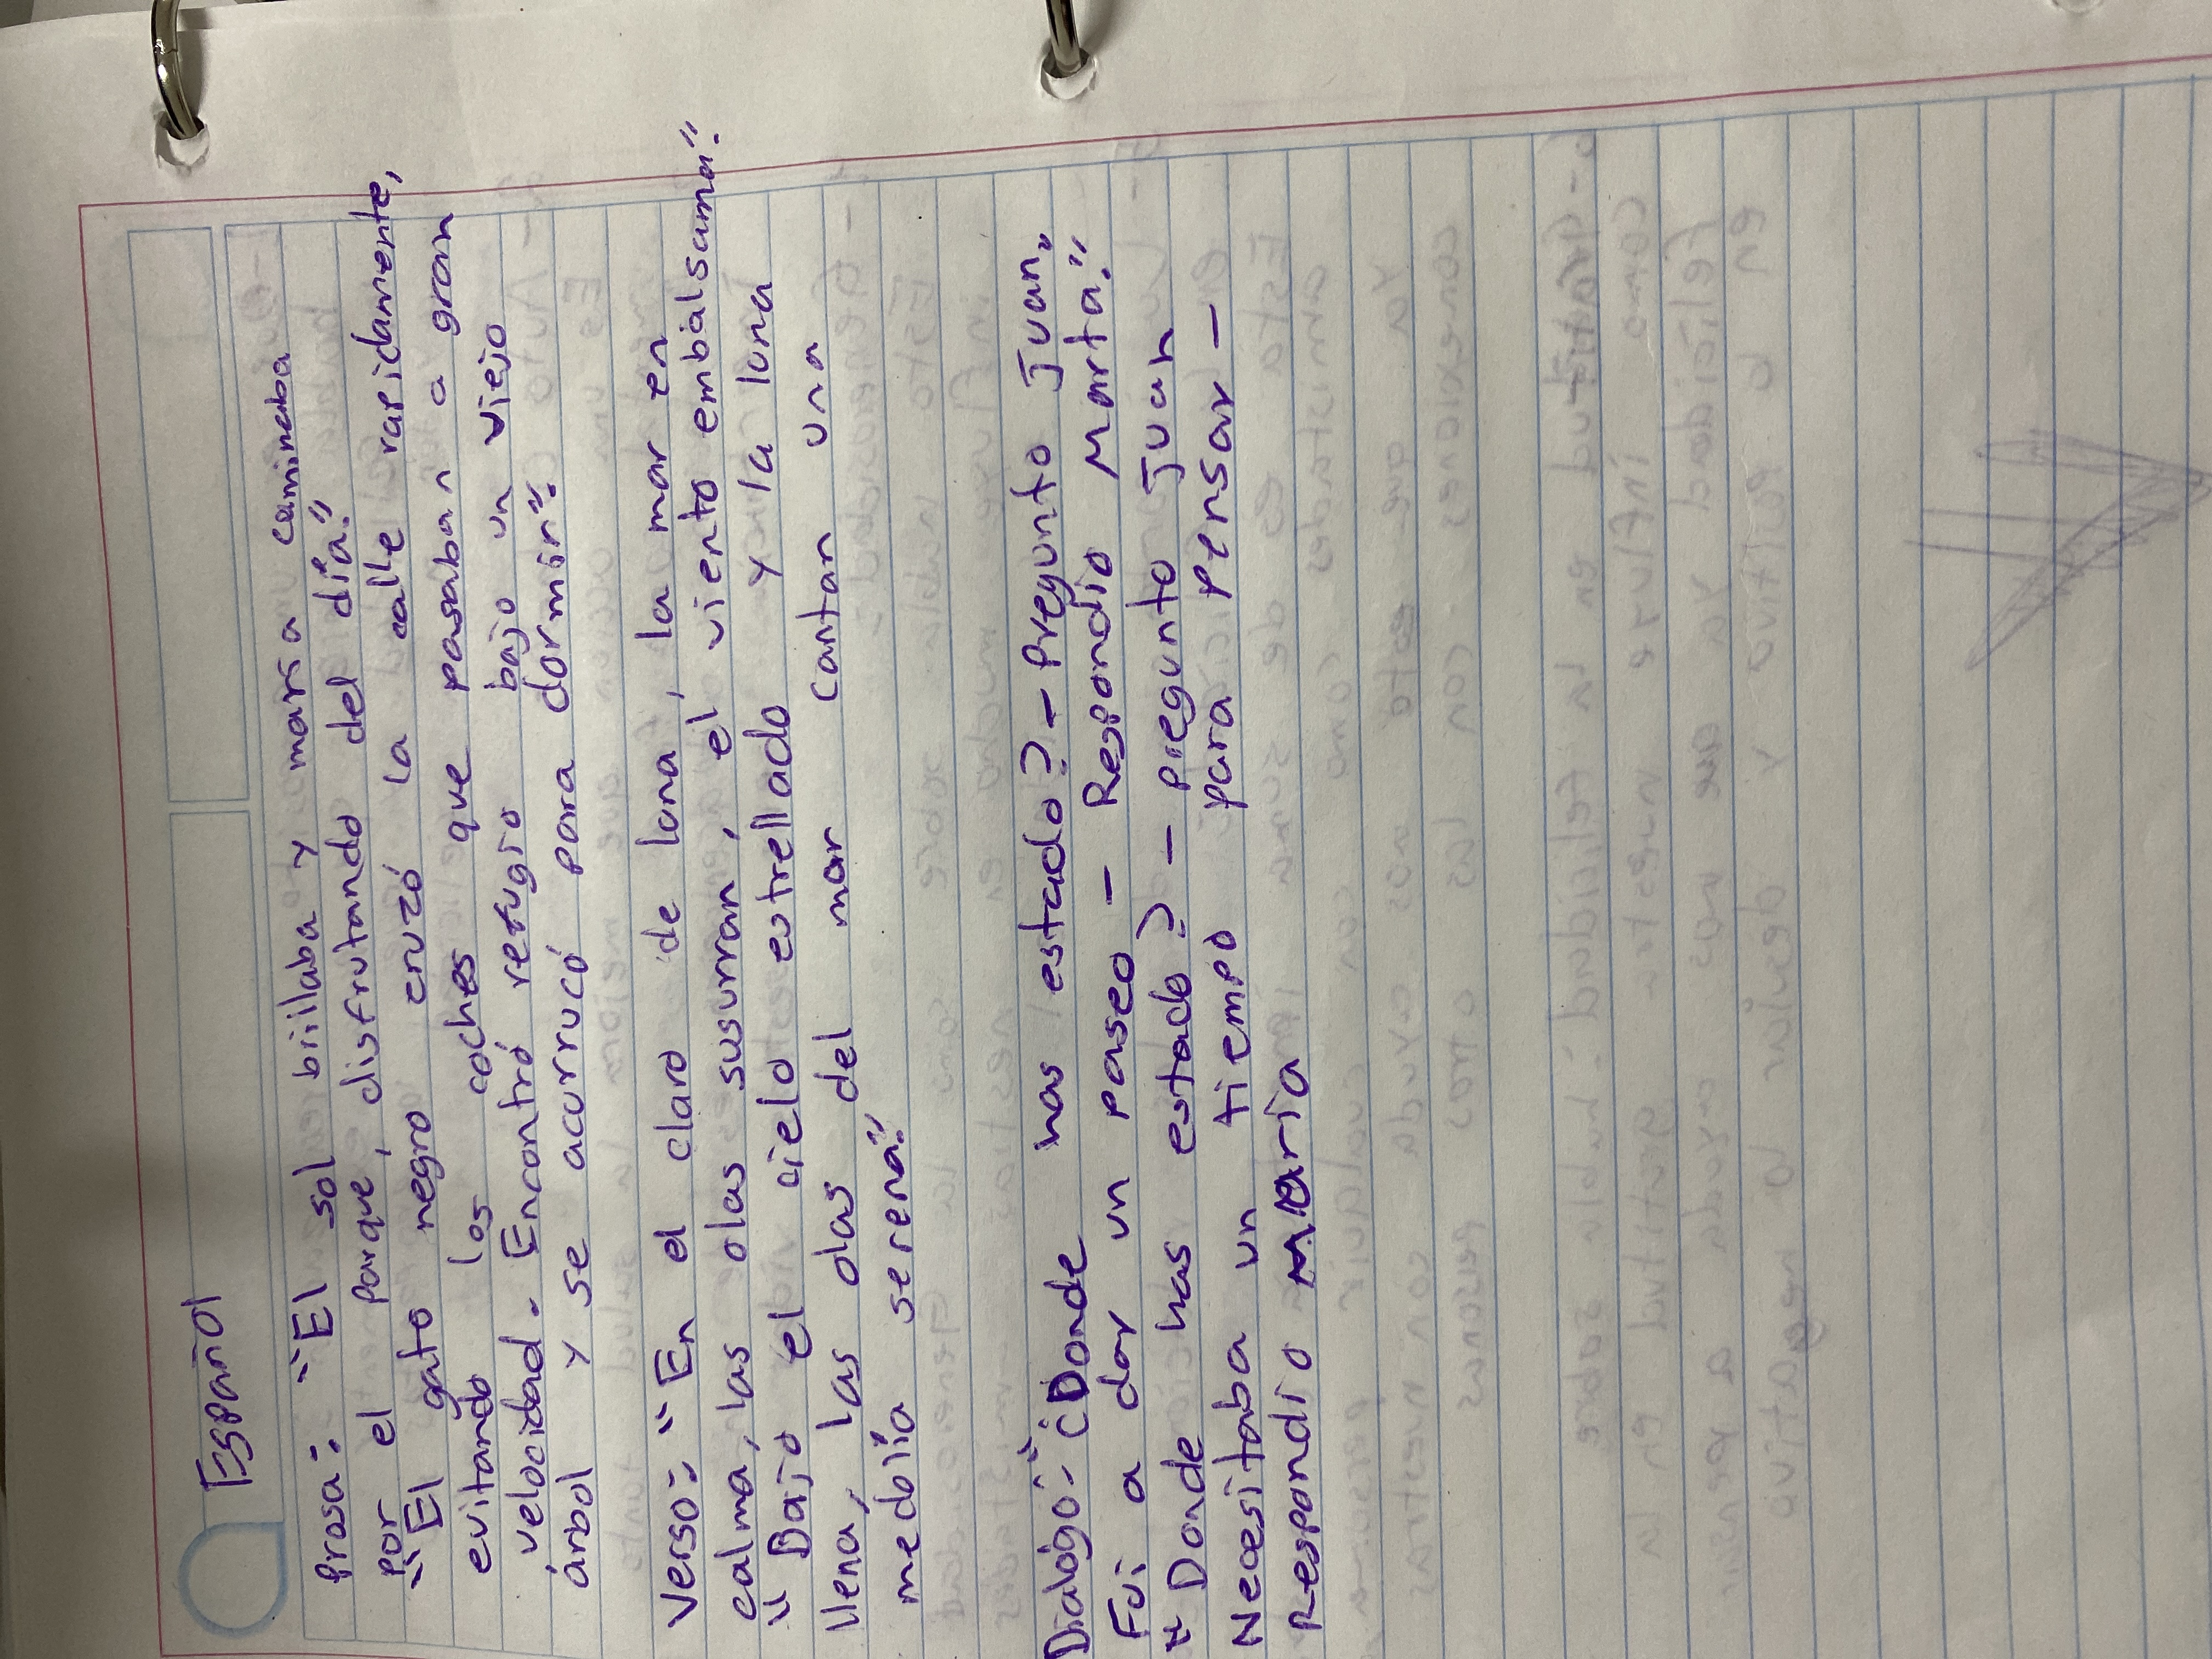 Español
Prosa: "El sol brillaba y maría caminaba
por el parque, disfrutando del día."
"El gato negro cruzó la calle rapidamente,
evitando los coches que pasaban a gran
velocidad. Encontró refugio bajo un viejo
árbol y se acurrucó para dormir."
Verso: "En el claro de luna, la mar en
calma, las olas susurran, el viento embalsama."
"Bajo el cielo estrellado y la luna
llena, las olas del mar cantan una
medolía serena."
Dialógo: "¿Donde has estado? - Pregunto Juan,
Fui a dar un paseo - Respondio Marta."
"Donde has estado? - pregunto Juan
Necesitaba un tiempo para pensar -
Respondio María